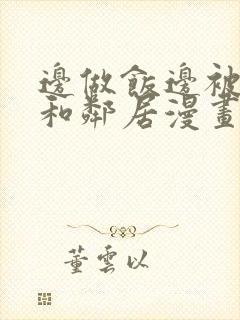 邊做飯邊被
和鄰居漫畫
董雲以